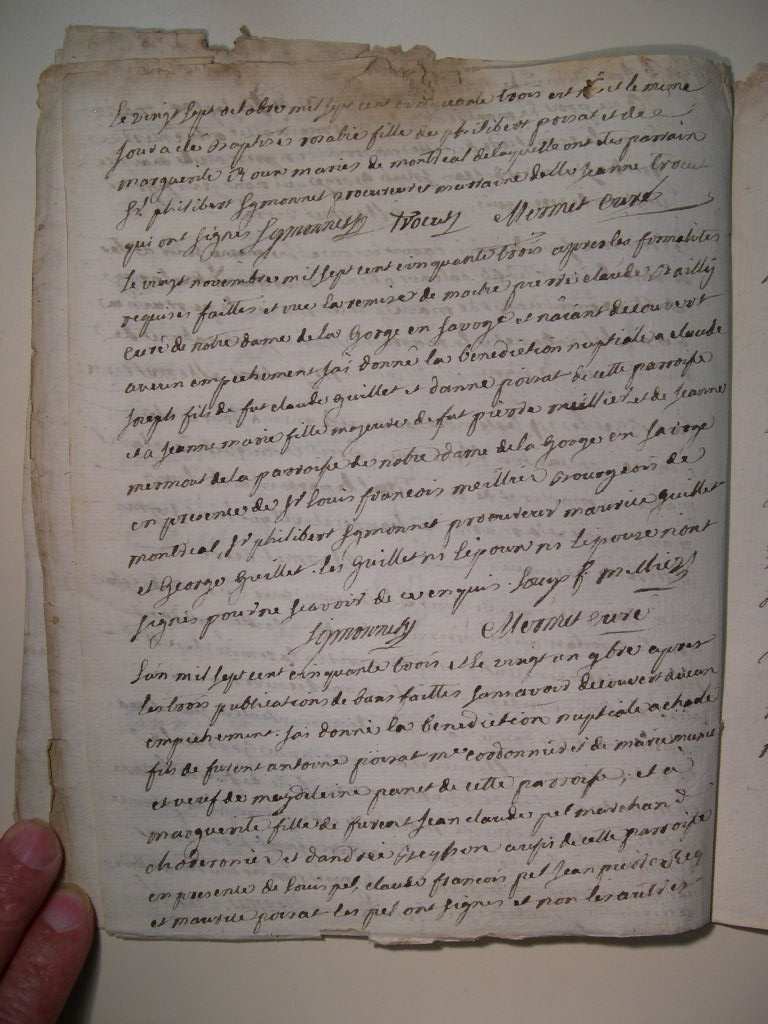 Le vingt sept octobre mil sept cent cinquante trois est né et le meme
jour a eté baptisée rosalie fille de philibert poisat et de
marguerite Roux maries de montreal de laquelle ont etes parrain
Sr. philibert Symonnet procureur et marraine delle Jeanne trocu
qui ont signes Symonnet trocus Mermet curé
Le vingt novembre mil sept cent cinquante trois apres les formalités
requises faittes et vue la remise de maitre pierre claude Bailly
curé de notre dame de la Gorge en Savoye et n'aiant decouvert
aucun empechement j'ai donné la benediction nuptiale a claude
joseph fils de fut claude guillet et d'anne poisat de cette parroisse
et a Jeanne marie fille majeure de fut pierre meillier et de Jeanne
mermout de la parroisse de notre dame de la Gorge en Savoye
en presence de Sr. Louis françois meillier Bourgeois de
montreal, Sr. philibert Symonnet procureur maurice guillet
et George Guillet. les Guillet ni l'epoux ni l'epouse n'ont
signés pour ne scavoir de ce enquis. Louis f. meillier
Symonnet Mermet curé
L'an mil sept cent cinquante trois et le vingt un 9bre apres
les trois publications de bans faittes sans avoir decouvert aucun
empechement. j'ai donné la benediction nuptiale a
fils de furent antoine poisat me. cordonnier et de marie
et veuf de magdeleine panet de cette parroisse, et à
marguerite fille de furent Jean claude pel marchand
choderonier et d'andréé aussi de cette parroisse
en presence de Louis pel, claude françois pel Jean pierre
et maurice poisat les pel ont signes et non les autres